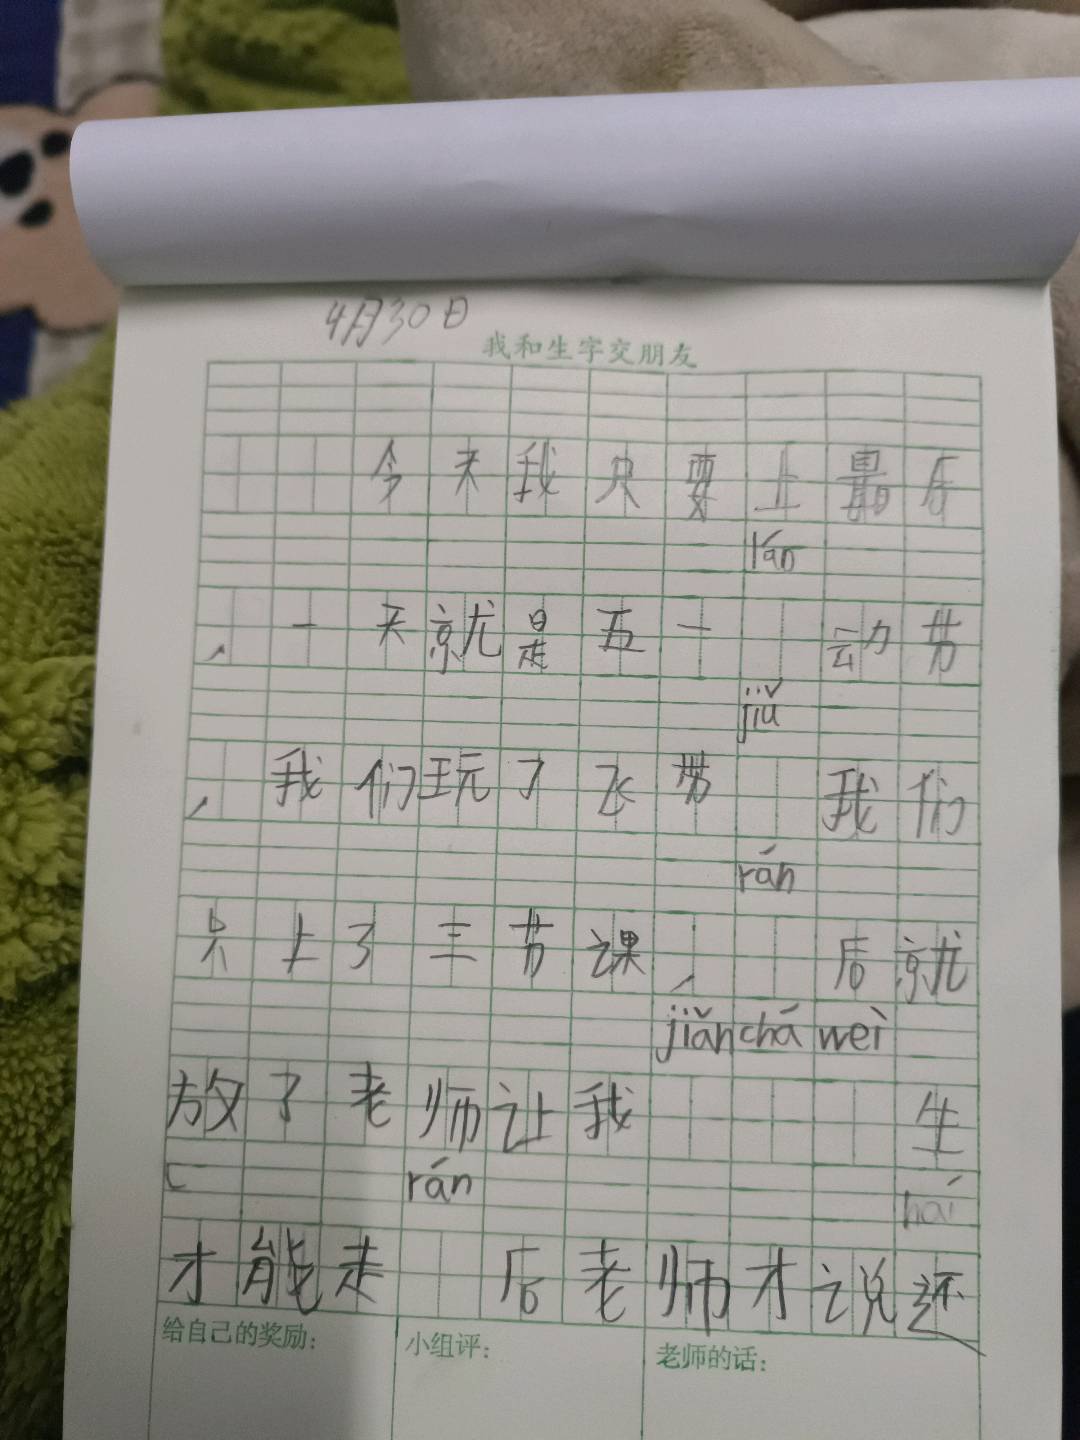 4月30日
我和生字交朋友
今天我只要上最后
lán
,一天就是五一 动劳
jiǔ
,我们玩了飞带 我们
rán
只上了三节课, 后就
jiǎn chá wèi
放了老师让我 生
c rán hái
才能走 后老师才说还
给自己的奖励: 小组评: 老师的话: